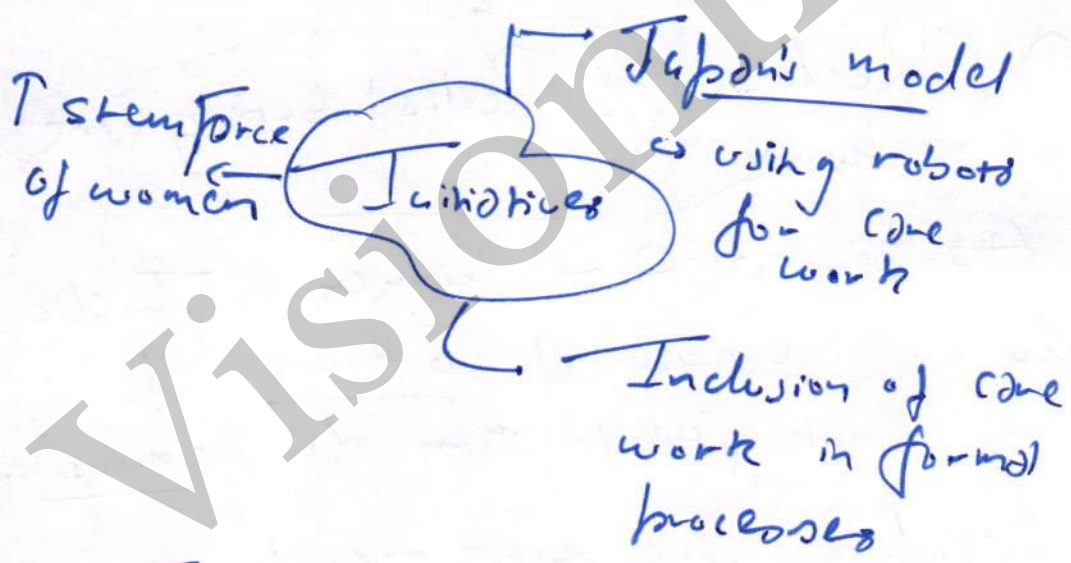 ↑ stem force
of women
Initiatives
Japan's model
↳ using robots
for care
work
Inclusion of care
work in formal
processes
Vision